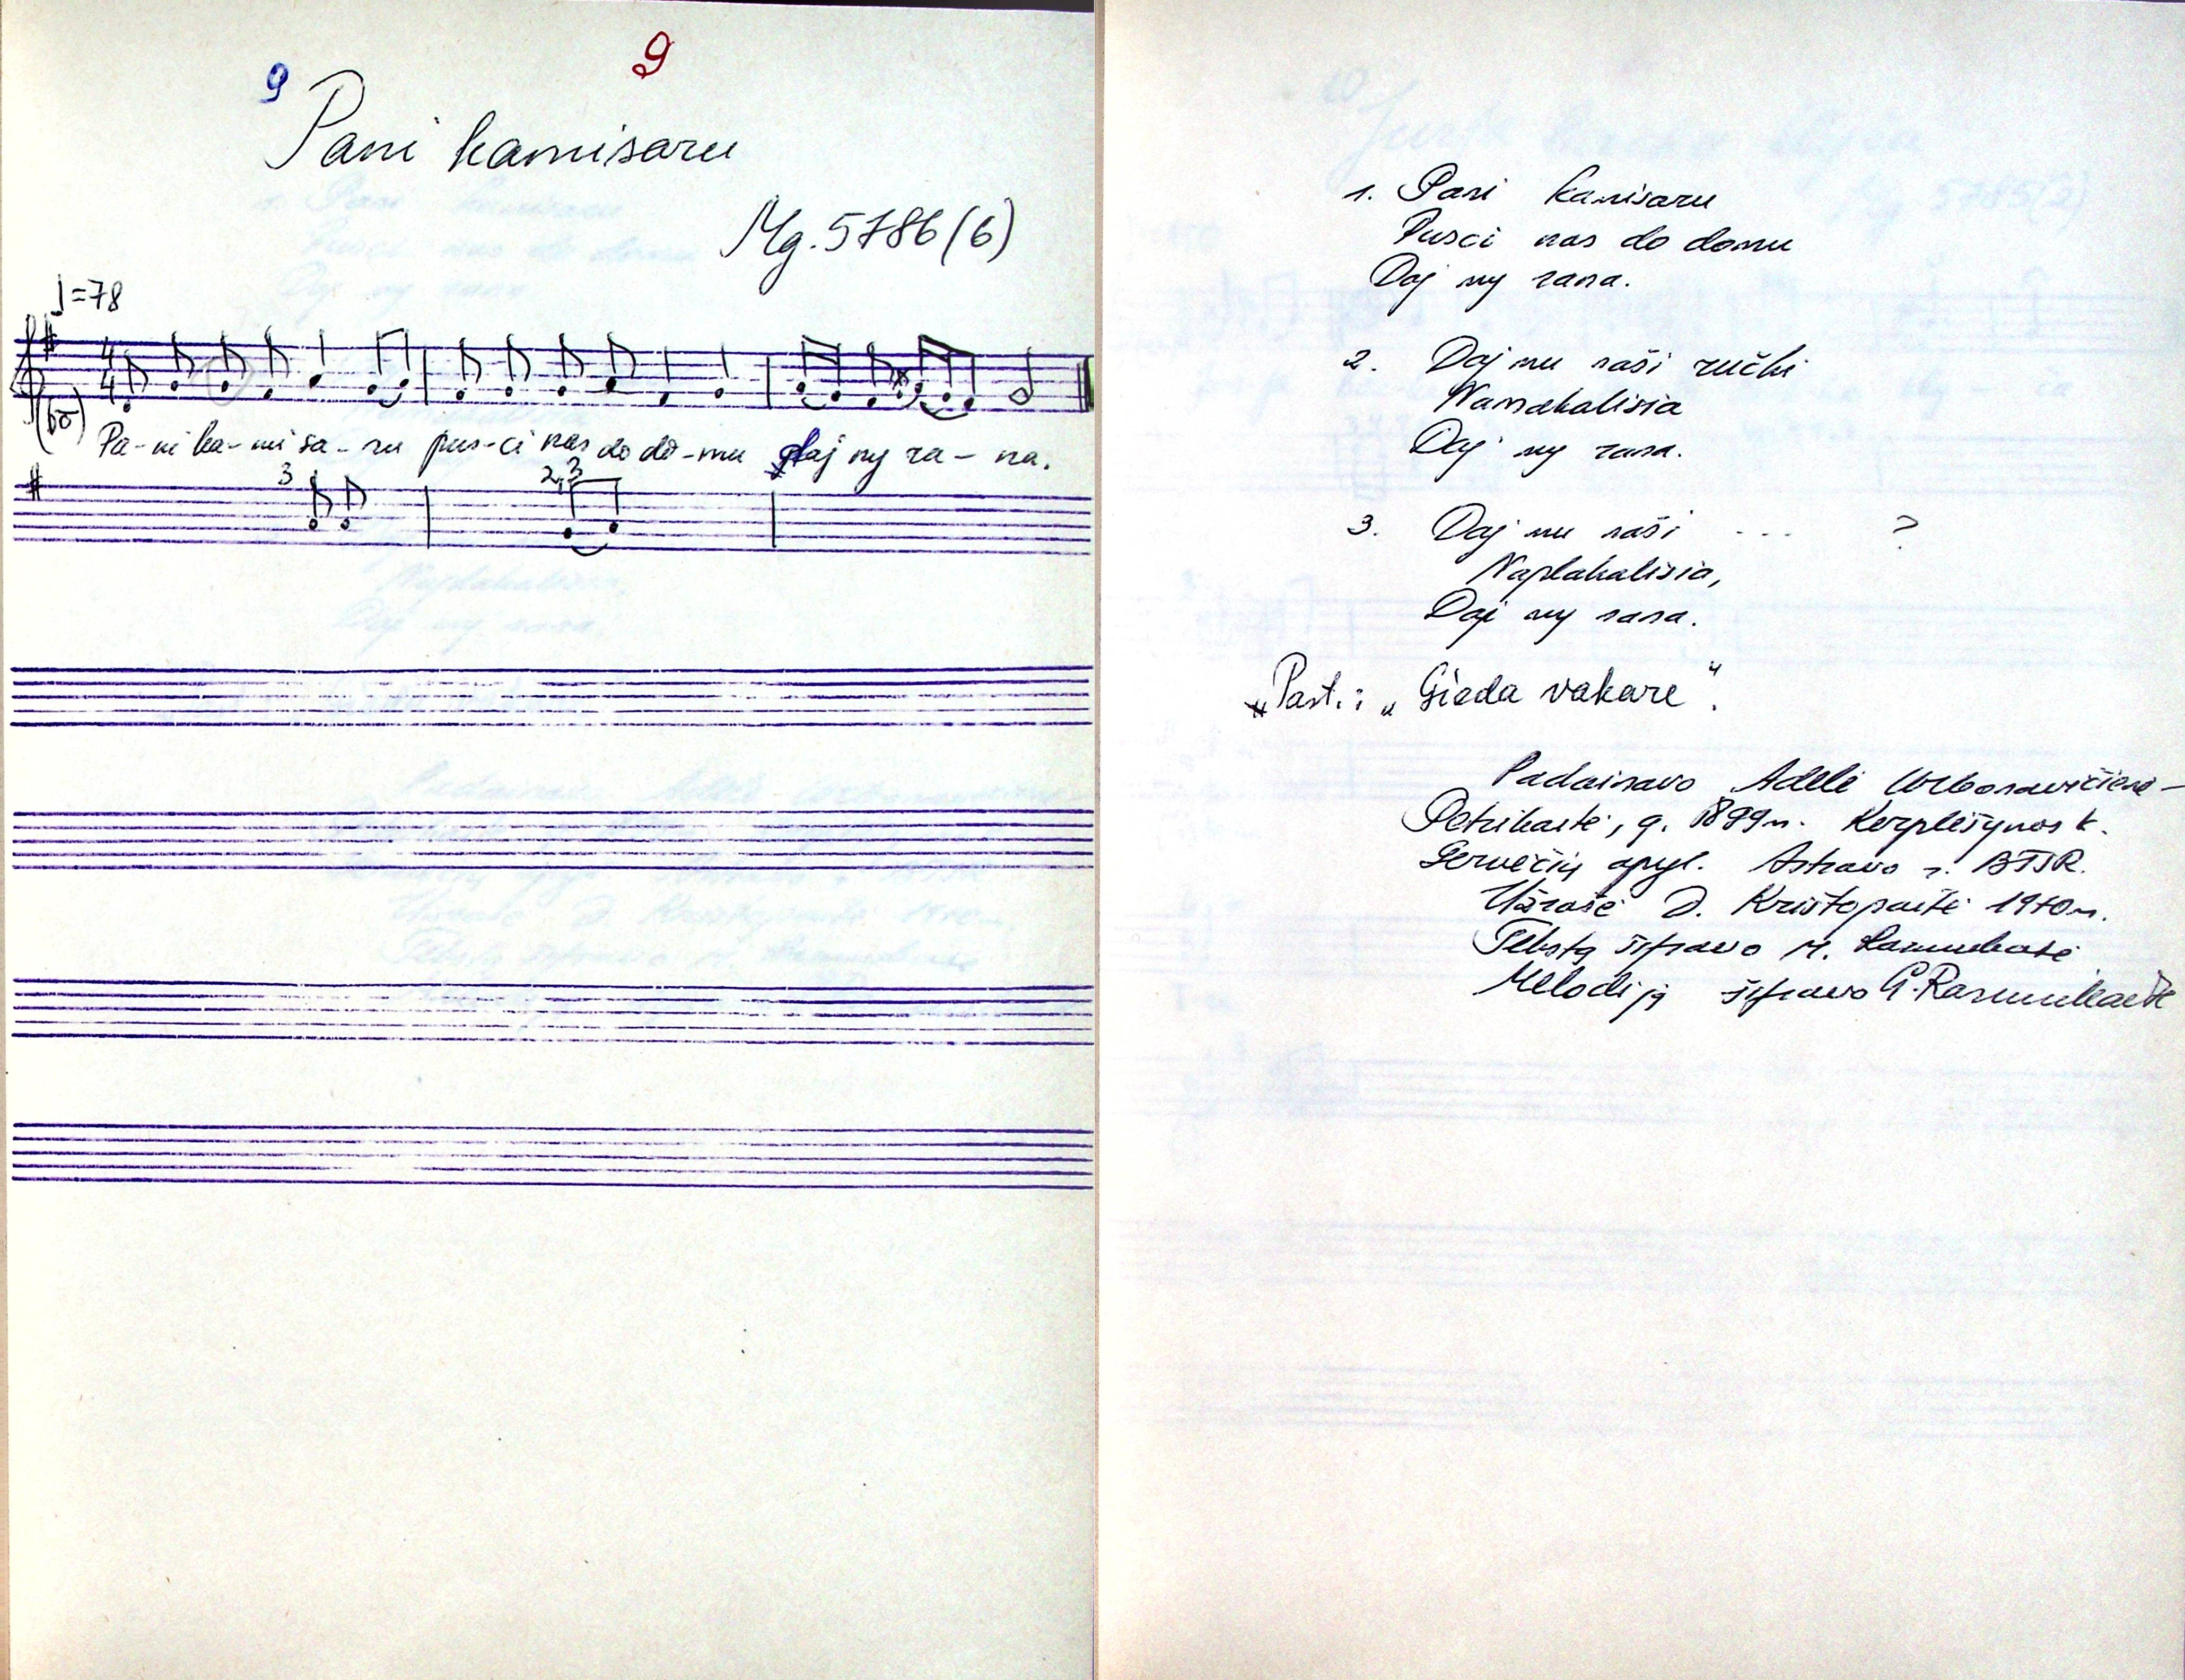 9
9
Pani kamisaru
Mg. 5786 (6)
♩=78
4
4
Pa-ni ka-mi sa-ru pus-ci nas do do-mu daj ny ra-na.
3
2,3
1. Pani kamisaru
Pusci nas do domu
Daj ny rana.
2. Daj nu naši ručki
Namakalisia
Daj ny rana.
3. Daj nu naši ... ?
Naplakalisia,
Daj ny rana.
Past.: „Gieda vakare".
Padainavo Adelė Urbanavičienė-
Petrikaitė, g. 1899 m. Kerplėšynos k.
Gervėčių apyl. Astravo r. BTSR.
Užrašė D. Krištopaitė 1970 m.
Tekstą išifravo M.
Melodiją šifravo G. Razmukaitė